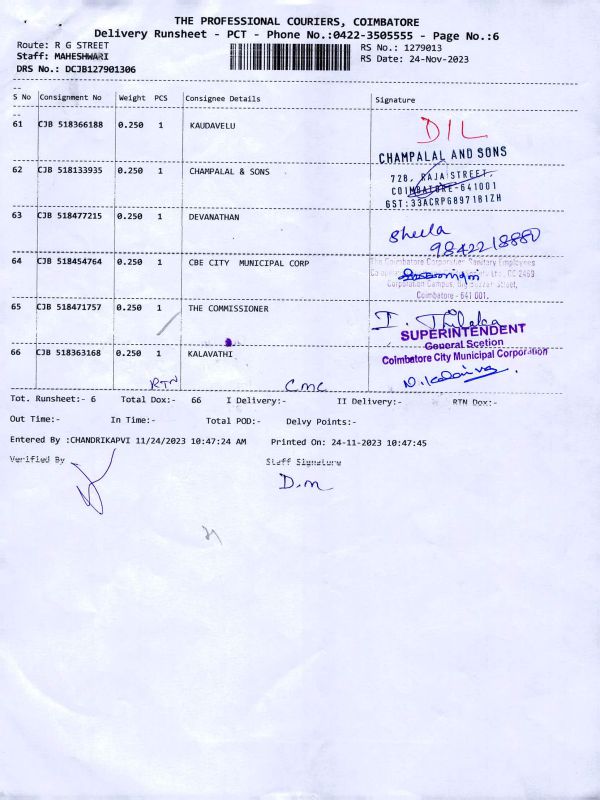 THE PROFESSIONAL COURIERS, COIMBATORE
Delivery Runsheet - PCT - Phone No.:0422-3505555 - Page No.:6
Route: R G STREET RS No.: 1279013
Staff: MAHESHWARI RS Date: 24-Nov-2023
DRS No.: DCJB127901306
S No Consignment No Weight PCS Consignee Details Signature
61 CJB 518366188 0.250 1 KAUDAVELU DIL
CHAMPALAL AND SONS
62 CJB 518133935 0.250 1 CHAMPALAL & SONS 728, RAJA STREET,
COIMBATORE-641001
GST:33ACRPG8971B1ZH
63 CJB 518477215 0.250 1 DEVANATHAN Sheela
9842218880
64 CJB 518454764 0.250 1 CBE CITY MUNICIPAL CORP The Coimbatore Corporation Sanitary Employees
Ltd., CC 2469
Corporation Campus, Big Bazaar Street,
Coimbatore - 641 001.
65 CJB 518471757 0.250 1 THE COMMISSIONER I. Thilaka
SUPERINTENDENT
General Scetion
Coimbatore City Municipal Corporation
66 CJB 518363168 0.250 1 KALAVATHI
RTN CMC
Tot. Runsheet:- 6 Total Dox:- 66 I Delivery:- II Delivery:- RTN Dox:-
Out Time:- In Time:- Total POD:- Delvy Points:-
Entered By :CHANDRIKAPVI 11/24/2023 10:47:24 AM Printed On: 24-11-2023 10:47:45
Verified By Staff Signature
D.m